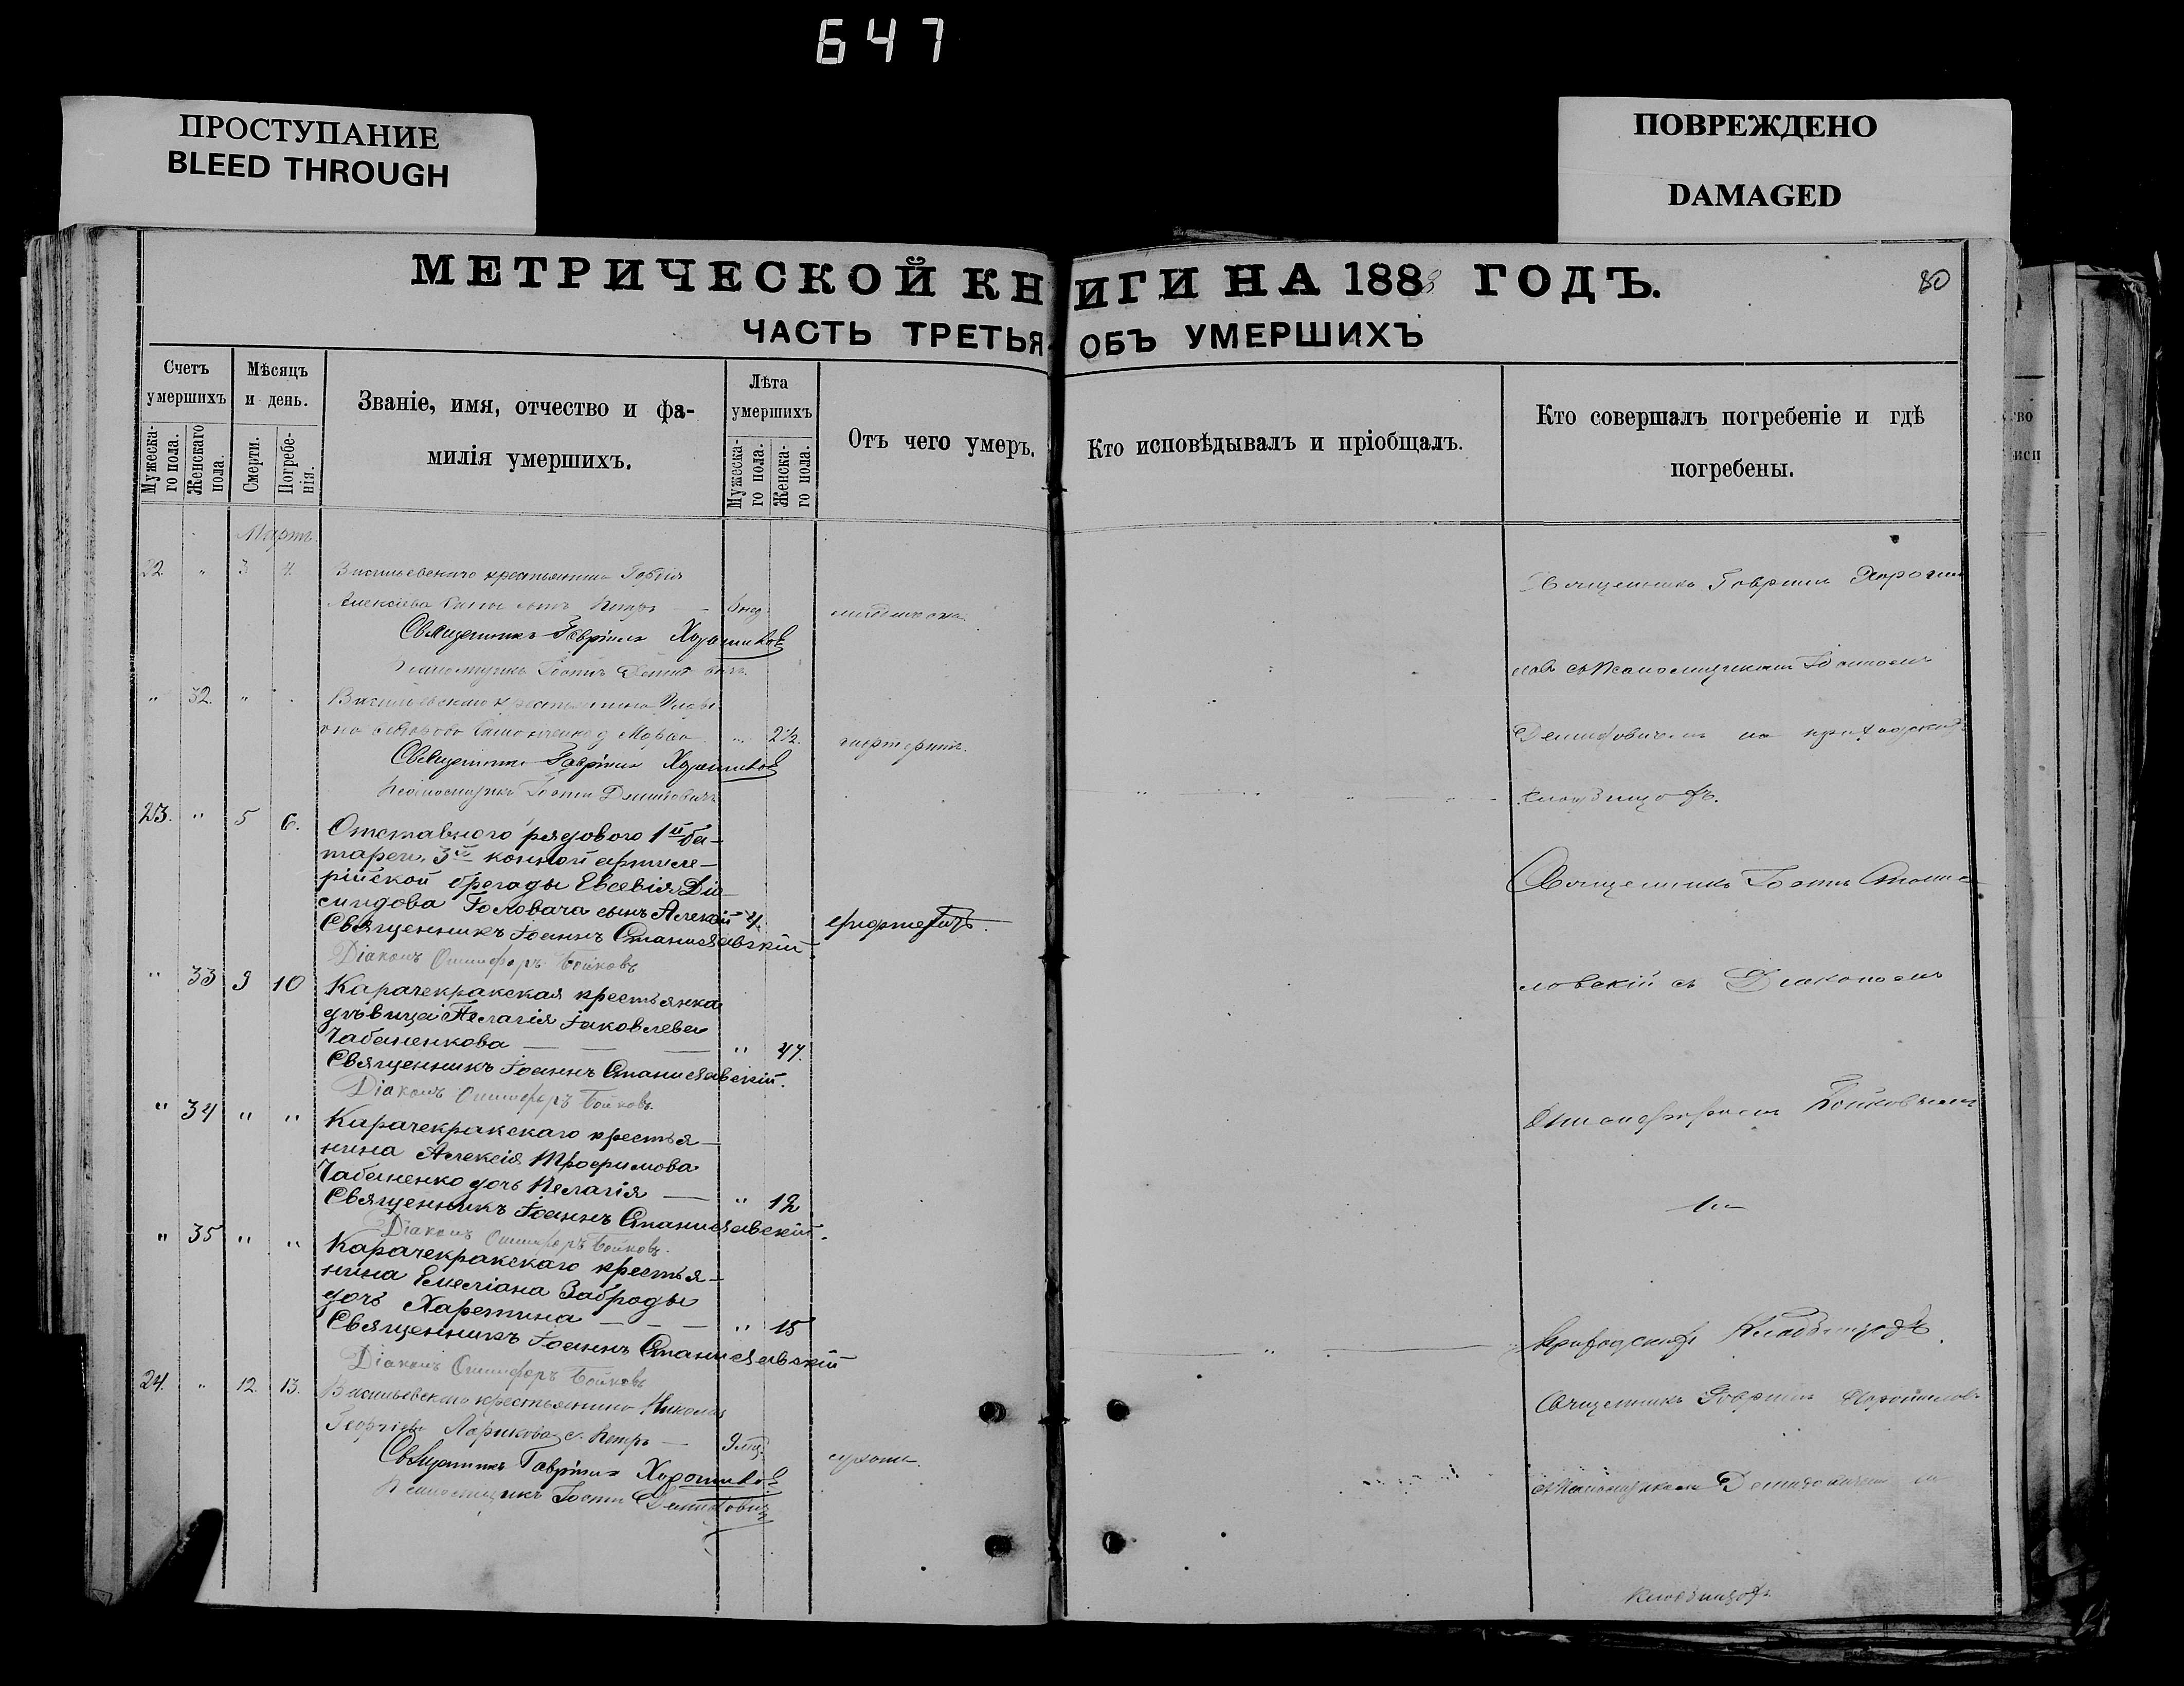 647
ПРОСТУПАНИЕ
BLEED THROUGH
ПОВРЕЖДЕНО
DAMAGED
МЕТРИЧЕСКОЙ КНИГИ НА 1883 ГОДЪ.
80
ЧАСТЬ ТРЕТЬЯ ОБЪ УМЕРШИХЪ
Счетъ умершихъ
Мужескаго пола.
Женскаго пола.
Мѣсяцъ и день.
Смерти.
Погребенія.
Званіе, имя, отчество и фамилія умершихъ.
Лѣта умершихъ
Мужескаго пола.
Женскаго пола.
Отъ чего умеръ.
Кто исповѣдывалъ и пріобщалъ.
Кто совершалъ погребеніе и гдѣ погребены.
Мартъ
22. " 3 4. Васильевскаго крестьянина
Алексіева сынъ Петръ
Священникъ Гавріилъ Хорошиловъ
Псаломщикъ Іоаннъ
Священникъ Гавріилъ
" 32. " Васильевскаго крестьянина
" 2½.
Священникъ Гавріилъ Хорошиловъ
Псаломщикъ Іоаннъ Демидовичъ
съ Псаломщикомъ Іоанномъ
Демидовичемъ на приходскомъ
кладбищѣ.
23. " 5 6. Отставного рядового 1й ба-
тареи, 3й конной артиле-
рійской бригады Евсевія Діо-
мидова Головача сынъ Алексій 4.
Священникъ Іоаннъ Станиславскій.
Діаконъ Онисифоръ Бойковъ
Священникъ Іоаннъ Станис-
лавскій съ Діакономъ
" 33 9 10 Карачекракская крестьянка
вдовица Пелагія Іаковлева
Чабаненкова — — — " 47.
Священникъ Іоаннъ Станиславскій.
Діаконъ Онисифоръ Бойковъ.
" 34 " " Карачекракскаго крестья-
нина Алексія Трофимова
Чабаненко дочь Пелагія — " 12
Священникъ Іоаннъ Станиславскій.
Діаконъ Онисифоръ Бойковъ.
Онисифоромъ Бойковымъ
на
" 35 " " Карачекракскаго крестья-
нина Емеліана Заброды
дочь Харетина — — — " 15
Священникъ Іоаннъ Станиславскій
Діаконъ Онисифоръ Бойковъ
приходскомъ кладбищѣ.
24. " 12. 13. Васильевскаго крестьянина Николая
Георгіева Ларикова с. Петръ — 9 мц.
Священникъ Гавріилъ Хорошиловъ
Псаломщикъ Іоаннъ Демидовичъ
Священникъ Гавріилъ Хорошиловъ
съ Псаломщикомъ Демидовичемъ на
кладбищѣ.